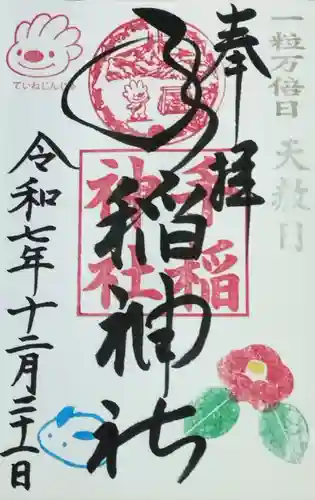 一粒万倍日 天赦日
奉拝
手稲神社
手稲
神社
ていねじんじゃ
令和七年十二月二十一日